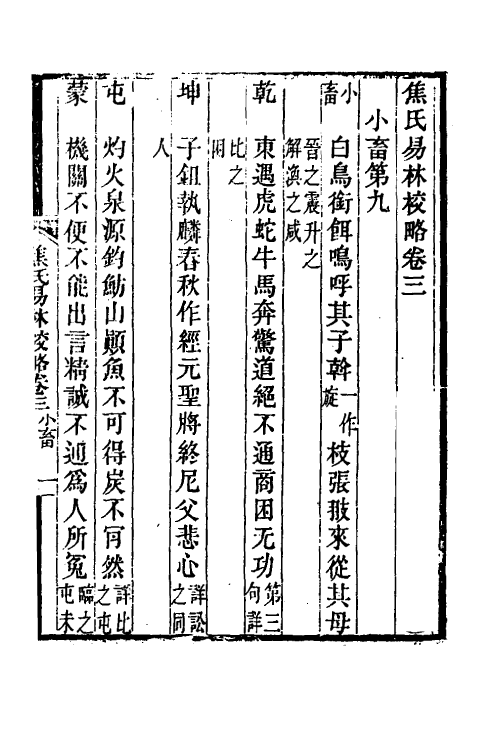 焦氏易林校略卷三
小畜第九
小畜 白鳥銜餌鳴呼其子斡一作旋枝張翅來從其母
晉之震升之解渙之咸
乾 東遇虎蛇牛馬奔驚道絕不通商困无功第三句詳
比之同
坤 子鉏執麟春秋作經元聖將終尼父悲心詳訟之同
人
屯 灼火泉源釣魴山顚魚不可得炭不肎然詳比之屯
蒙 機關不便不能出言精誠不通爲人所冤臨之屯未
焦氏易林校略卷三 小畜 一